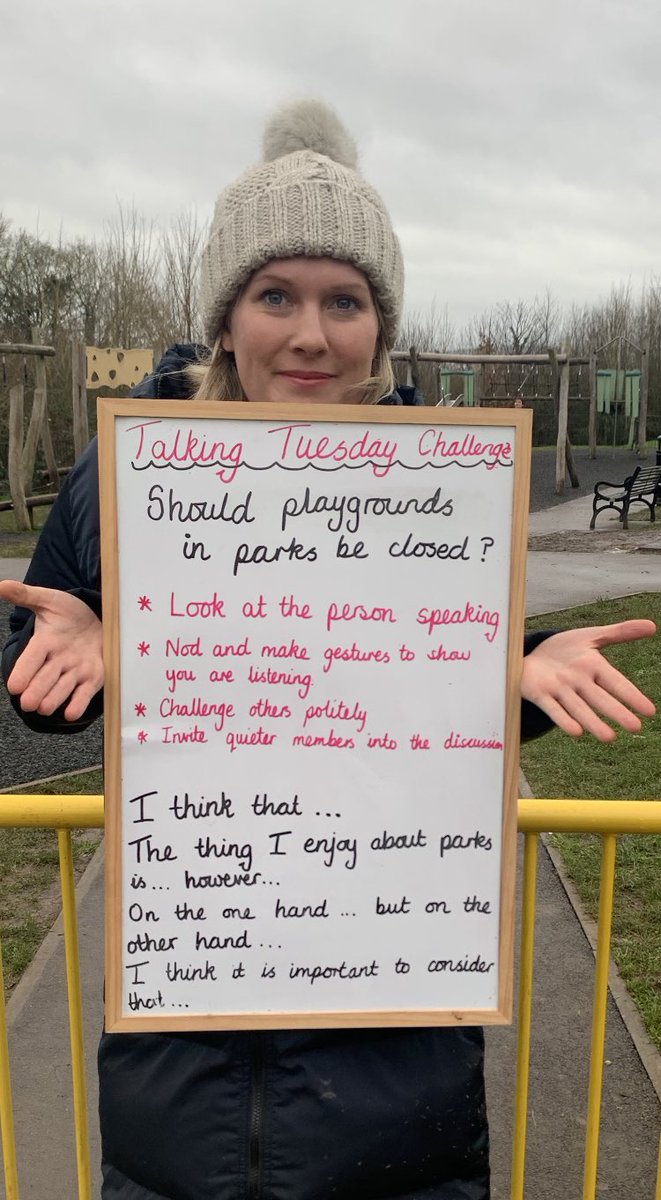 Talking Tuesday Challenge
Should playgrounds
in parks be closed?
* Look at the person speaking
* Nod and make gestures to show
you are listening.
* Challenge others politely
* Invite quieter members into the discussion
I think that ...
The thing I enjoy about parks
is... however...
On the one hand ... but on the
other hand ...
I think it is important to consider
that ...